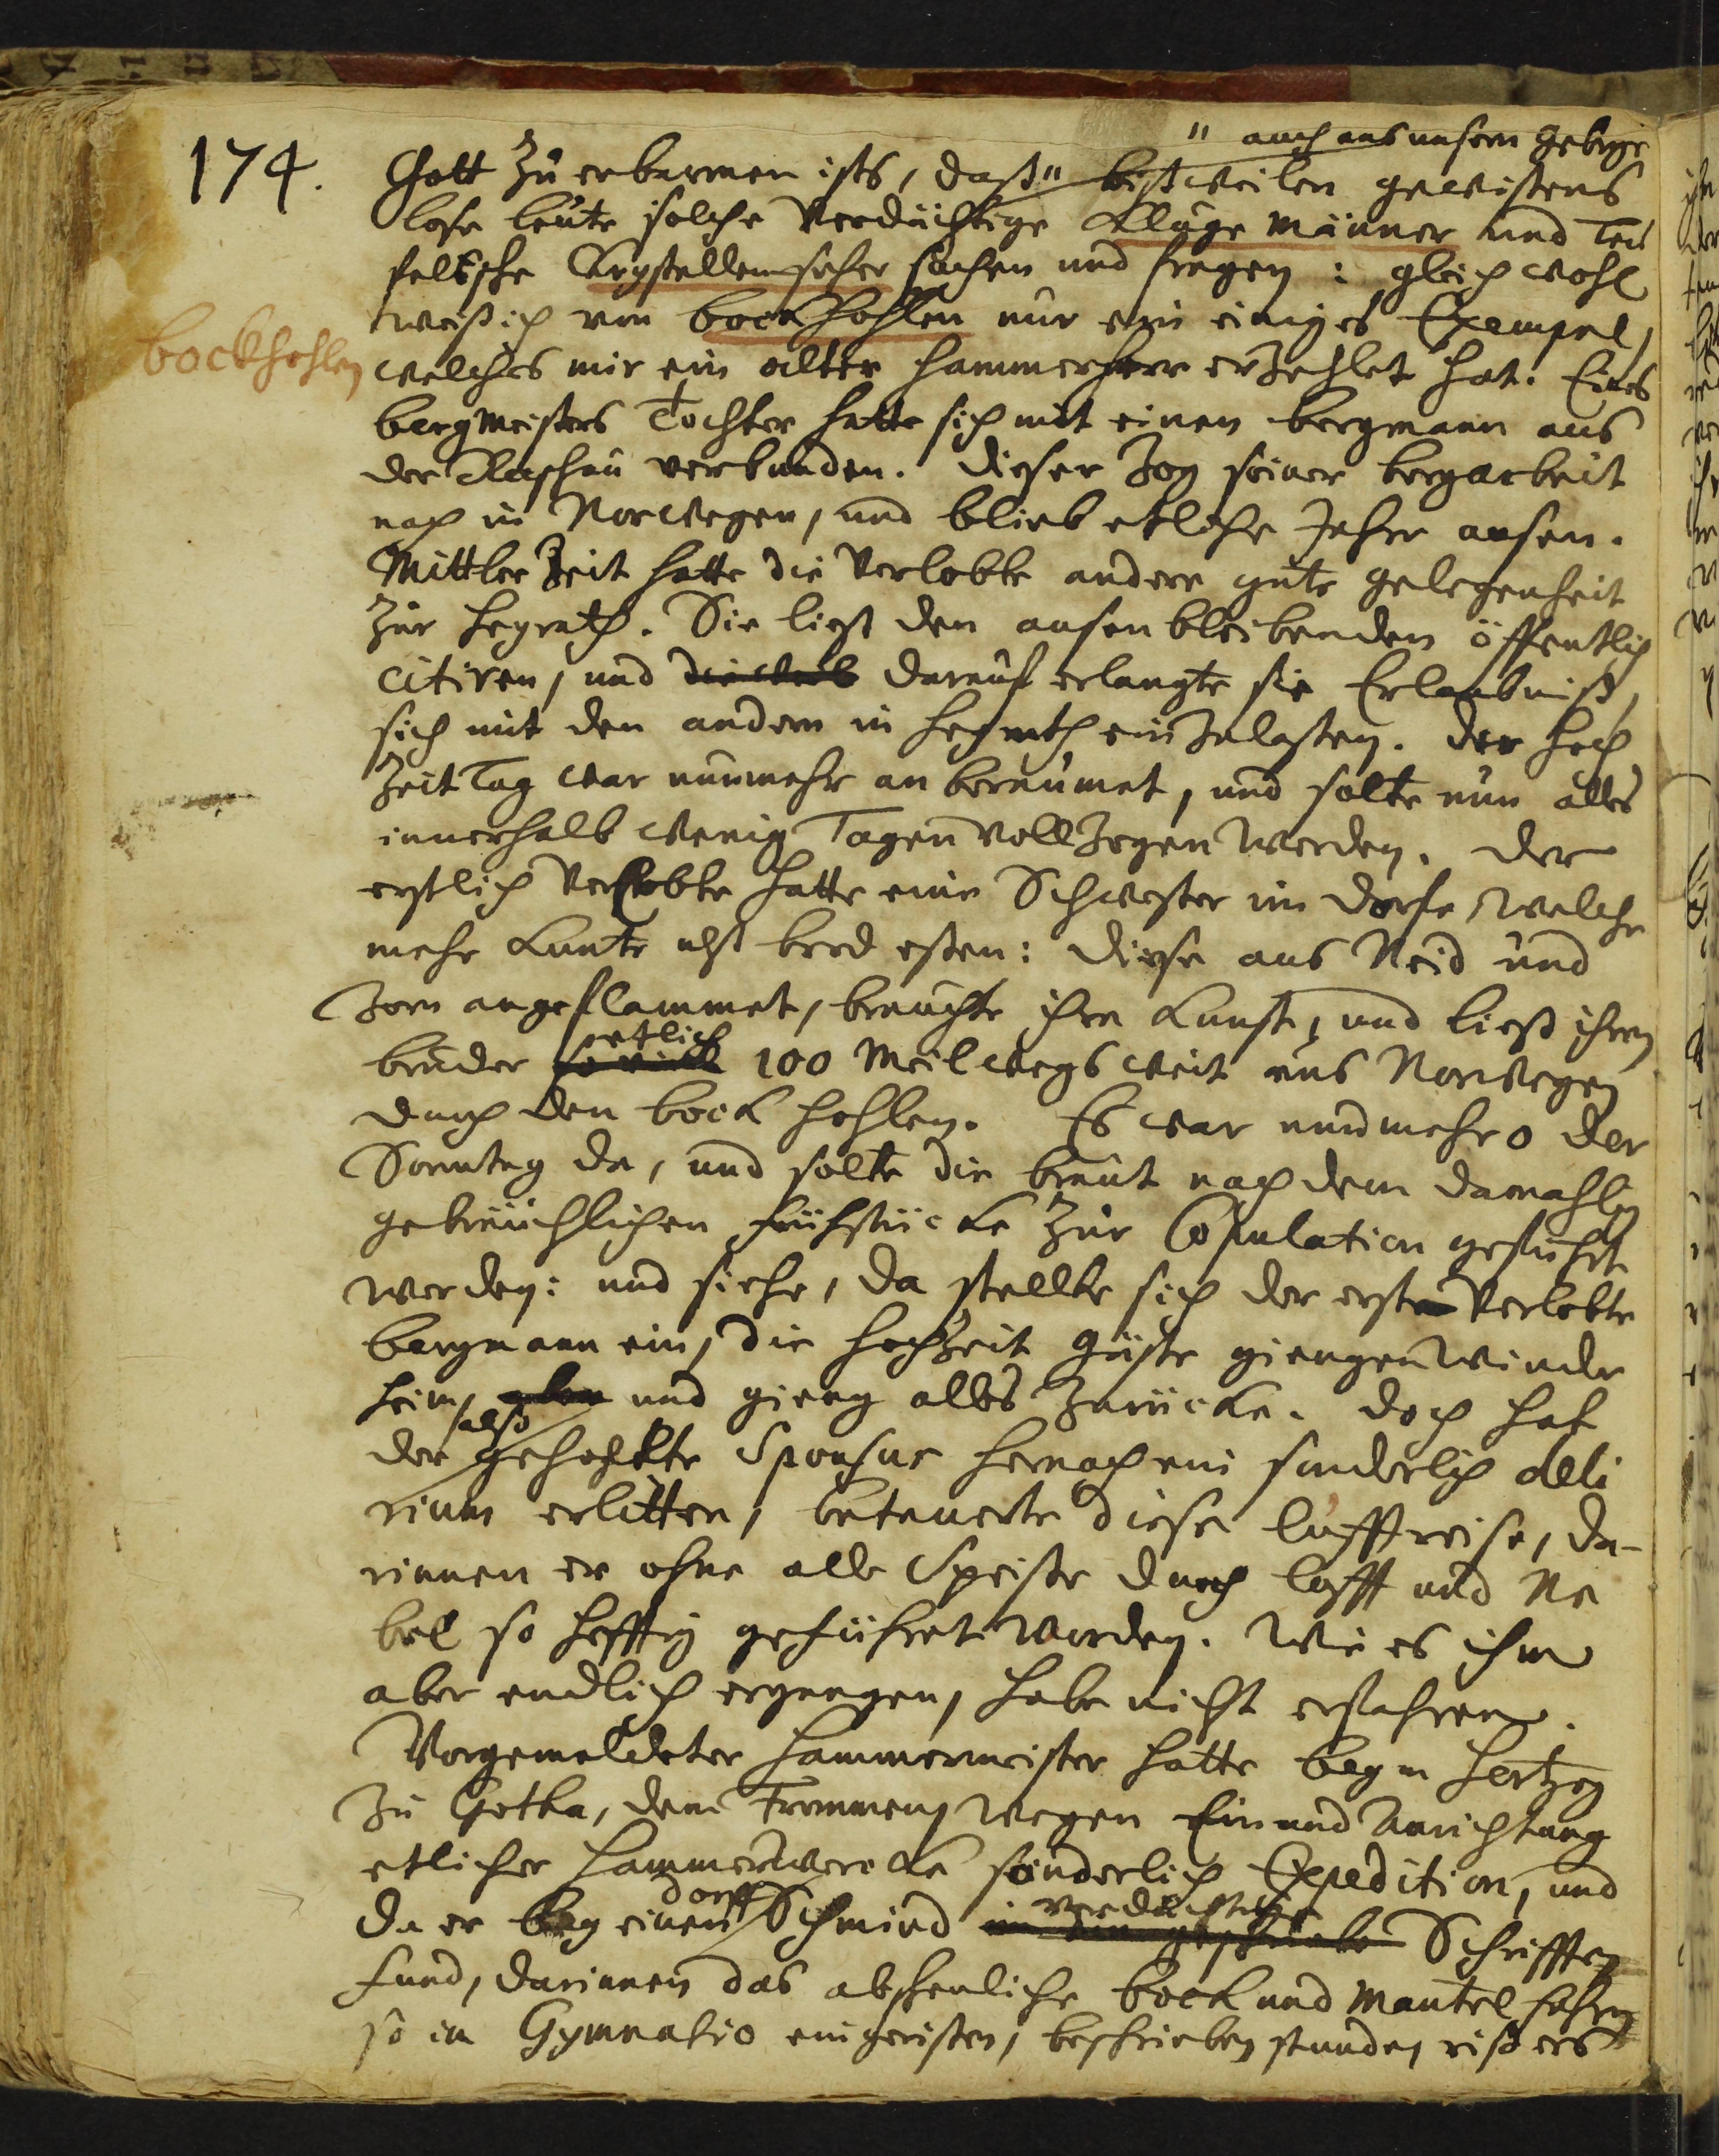 " auch aus unserm Gebirge
174. Gott zu erbarmen ists, daß " bißweilen gewißens
lose leute solche Verdächtige Kluge Männer und Teu
felische Crystallenseher suchen und fragen: gleichwohl
weiß ich von bockhohlen nur ein einiges Exempel,
bockhohlen
welches mir ein alter Hammerherr erzehlet hat. Eines
bergmeisters Tochter hatte sich mit einen bergmann aus
der Raschau verbunden. Dieser zog seiner bergarbeit
nach in Norwegen, und blieb etliche Jahre ausen.
Mittler Zeit hatte die Verlobte andere gute gelegenheit
zur Heyrath. Sie ließ den ausenbleibenden öffentlich
citiren, und darauf erlangte sie Erlaubniß,
sich mit den andern in Heyrath einzulaßen. Der Hoch
zeit Tag war nunmehr anberaumet, und solte nun alles
innerhalb wenig Tagen vollzogen werden. Der
erstlich Verlobte hatte eine Schwester im Dorfe, welche
mehr kunte alß brod eßen: Diese aus Neid und
Zorn angeflammet, brauchte ihre Kunst, und ließ ihren
etlich
bruder so viel 100 Meilwegs weit aus Norwegen
durch den bock hohlen. Es war nunmehro der
Sonntag da, und solte die braut nach dem damahls
gebräuchlichen frühstücke zur Copulation geführt
werden: und siehe, da stellte sich der erste Verlobte
bergmann ein, die Hochzeit Gäste giengen wieder
heim, und gieng alles zurücke. Doch hat
also
der gehohlte Sponsus hernach ein sonderlich deli
rium erlitten, betauerte diese lufftreise, da-
rinnen er ohne alle Speise durch lufft und Ne
bel so hefftig geführet worden. Wie es ihm
aber endlich ergangen, habe nicht erfahren.
Vorgemeldeter Hammermeister hatte beym Hertzog
zu Gotha, dem Frommen, wegen Ein und Anrichtung
etlicher Hammerwercke sonderlich Expedition, und
dorff verdächtige
da er bey einem Schmied Schrifften
fund, darinnen das abscheuliche bock und Mantelfahren
so in Gymnasio eingerißen, beschrieben stunde, riß ers